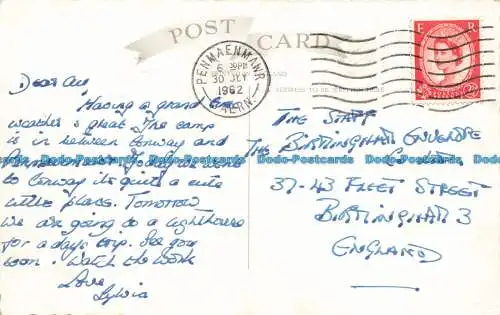 POST CARD
PENMAENMAWR
6 30PM
30 JLY
1962
CAERN.
E R
Dear All
Having a grand time
weather's great. The camp
is in between Conway and
Today we went
to Conway it's quite a cute
little place. Tomorrow
we are going to a lighthouse
for a days trip. See you
soon. Watch the work
Love
Sylvia
THE STAFF
THE BIRMINGHAM
37-43 FLEET STREET
BIRMINGHAM 3
ENGLAND
Dodo-Postcards Dodo-Postcards Dodo-Postcards Dodo-Postcards Dodo-Postcards